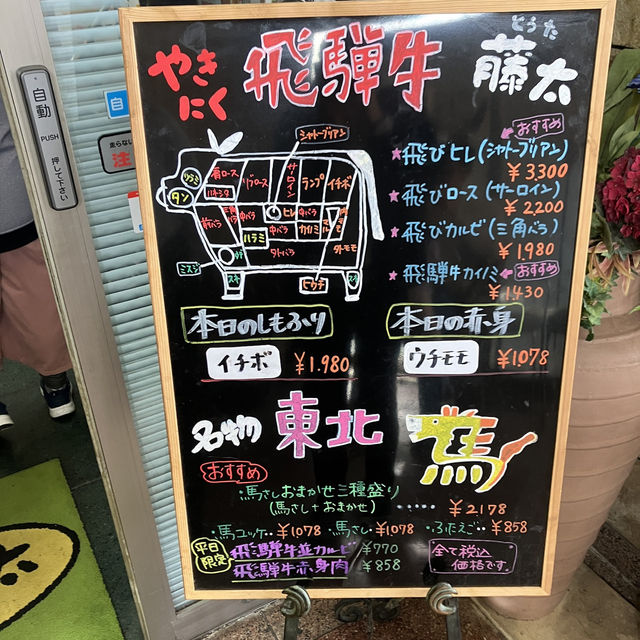 とうた
やきにく 飛騨牛 藤太
自動
PUSH
押して下さい
走らない
注
シャトーブリアン
おすすめ
★飛びヒレ(シャトーブリアン)
¥3300
★飛びロース(サーロイン)
¥2200
★飛びカルビ(三角バラ)
¥1,980
★飛騨牛カイノミ おすすめ
¥1430
ツラミ
タン
肩ロース
リブロース
サーロイン
ランプ
イチボ
ハネシタ
前バラ
中バラ
ヒレ
中バラ
中バラ
カイノミ
ハラミ
外バラ
外モモ
ミスジ
スネ
ヒウチ
スネ
本日のしもふり
イチボ ¥1.980
本日の赤身
ウチモモ ¥1078
名物 東北 馬
おすすめ
・馬さしおまかせ三種盛り
(馬さし+おまかせ) ・・・・・・ ¥2178
・馬ユッケ・・¥1078 ・馬さし・¥1078 ・ふたえご・・¥858
平日限定
飛騨牛並カルビ ¥770
飛騨牛赤身肉 ¥858
全て税込
価格です